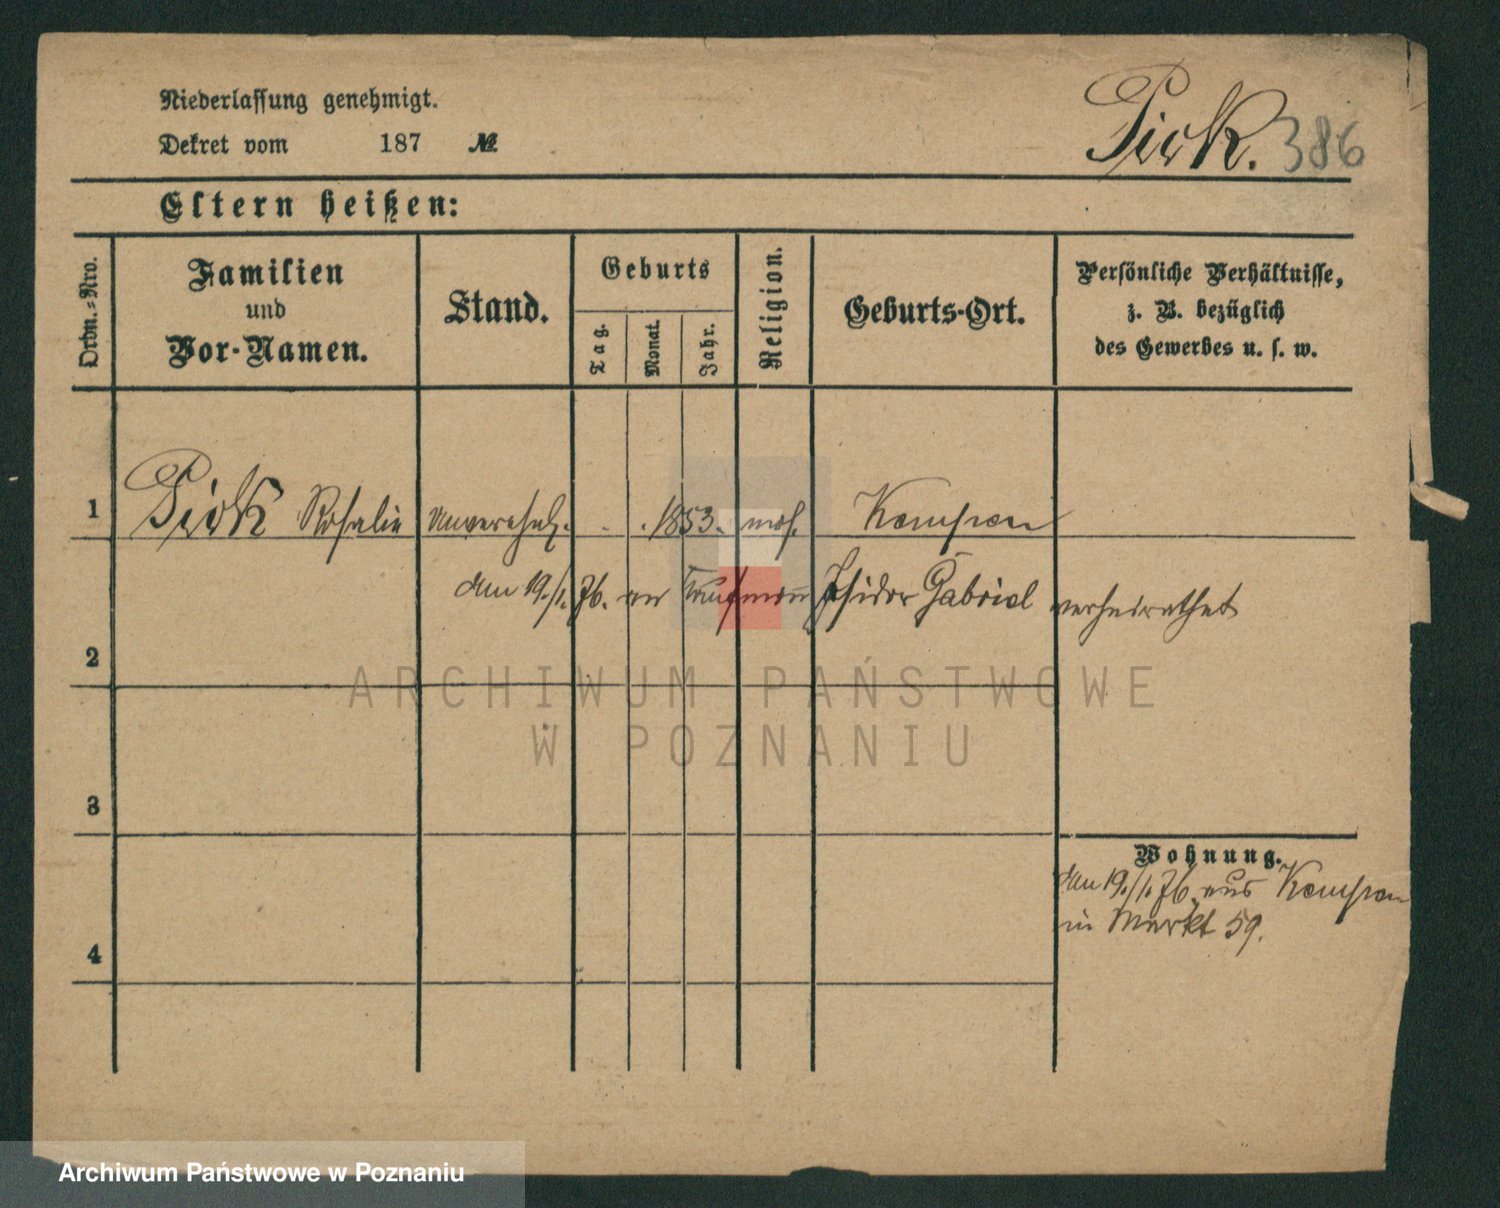 Niederlassung genehmigt.
Dekret vom 187 №
Pick. 386
Eltern heißen:
Ordn.-Nro.
Familien
und
Vor-Namen.
Stand.
Geburts
Tag.
Monat.
Jahr.
Religion.
Geburts-Ort.
Persönliche Verhältnisse,
z. B. bezüglich
des Gewerbes u. s. w.
1 Pick Rosalie unverehel. . . 1853. mos. Kempen
am 19./1. 76. an Kaufmann Isidor Gabriel verheirathet
2
ARCHIWUM PAŃSTWOWE
W POZNANIU
3
Wohnung.
am 19./1. 76. aus Kempen
in Markt 59.
4
Archiwum Państwowe w Poznaniu